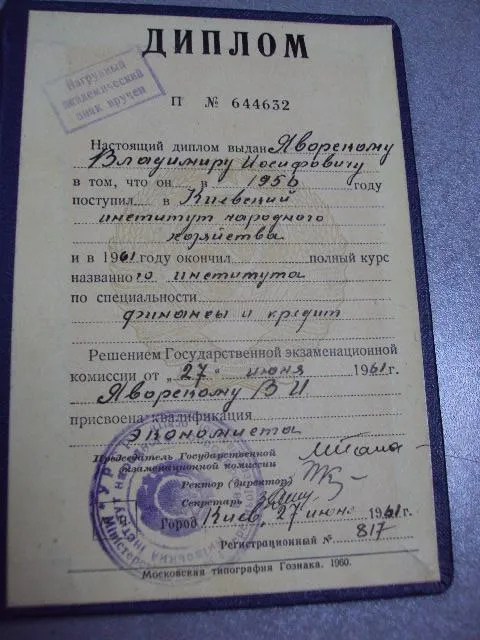 ДИПЛОМ
Нагрудный
академический
знак вручен
П № 644632
Настоящий диплом выдан Яворскому
Владимиру Иосифовичу
в том, что он в 1956 году
поступил в Киевский
институт народного
хозяйства
и в 1961 году окончил полный курс
названного института
по специальности
финансы и кредит
Решением Государственной экзаменационной
комиссии от „27“ июня 1961 г.
Яворскому В И
присвоена квалификация
экономиста
Председатель Государственной
экзаменационной комиссии
Ректор (директор)
Секретарь
Город Киев, 27 июня 1961 г.
Регистрационный № 817
Московская типография Гознака. 1960.